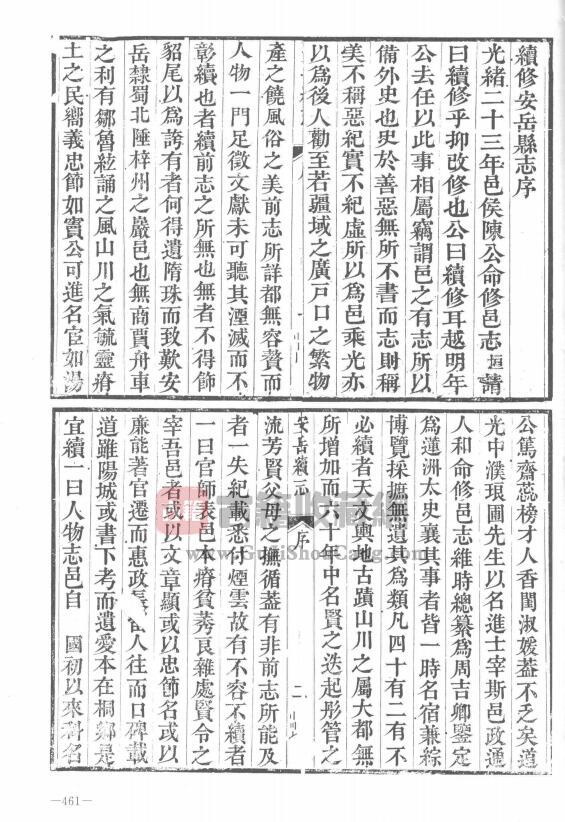 續修安岳縣志序
光緒二十三年邑侯陳公命修邑志垣請
曰續修乎抑改修也公曰續修耳越明年
公去任以此事相屬竊謂邑之有志所以
備外史也史於善惡無所不書而志則稱
美不稱惡紀實不紀虛所以爲邑乘光亦
以爲後人勸至若疆域之廣戶口之繁物
產之饒風俗之美前志所詳都無容贅而
人物一門足徵文獻未可聽其湮滅而不
彰續也者續前志之所無也無者不得飾
貂尾以爲誇有者何得遺隋珠而致歎安
岳隸蜀北陲梓州之巖邑也無商賈舟車
之利有鄒魯絃誦之風山川之氣毓靈瘠
土之民嚮義忠節如竇公可進名宦如湯
公篤齋蕊榜才人香閨淑媛葢不乏矣道
光中濮琅圃先生以名進士宰斯邑政通
人和命修邑志維時總纂爲周吉卿鑒定
爲蓮洲太史襄其事者皆一時名宿兼綜
博覽採摭無遺其爲類凡四十有二有不
必續者天文輿地古蹟山川之屬大都無
所增加而六十年中名賢之迭起彤管之
安岳續志 序 二
流芳賢父母之撫循葢有非前志所能及
者一失紀載悉付煙雲故有不容不續者
一曰官師表邑本瘠貧莠良雜處賢令之
宰吾邑者或以文章顯或以忠節名或以
廉能著官遷而惠政長人往而口碑載
道雖陽城或書下考而遺愛本在桐鄉是
宜續一曰人物志邑自 國初以來科名
—461—